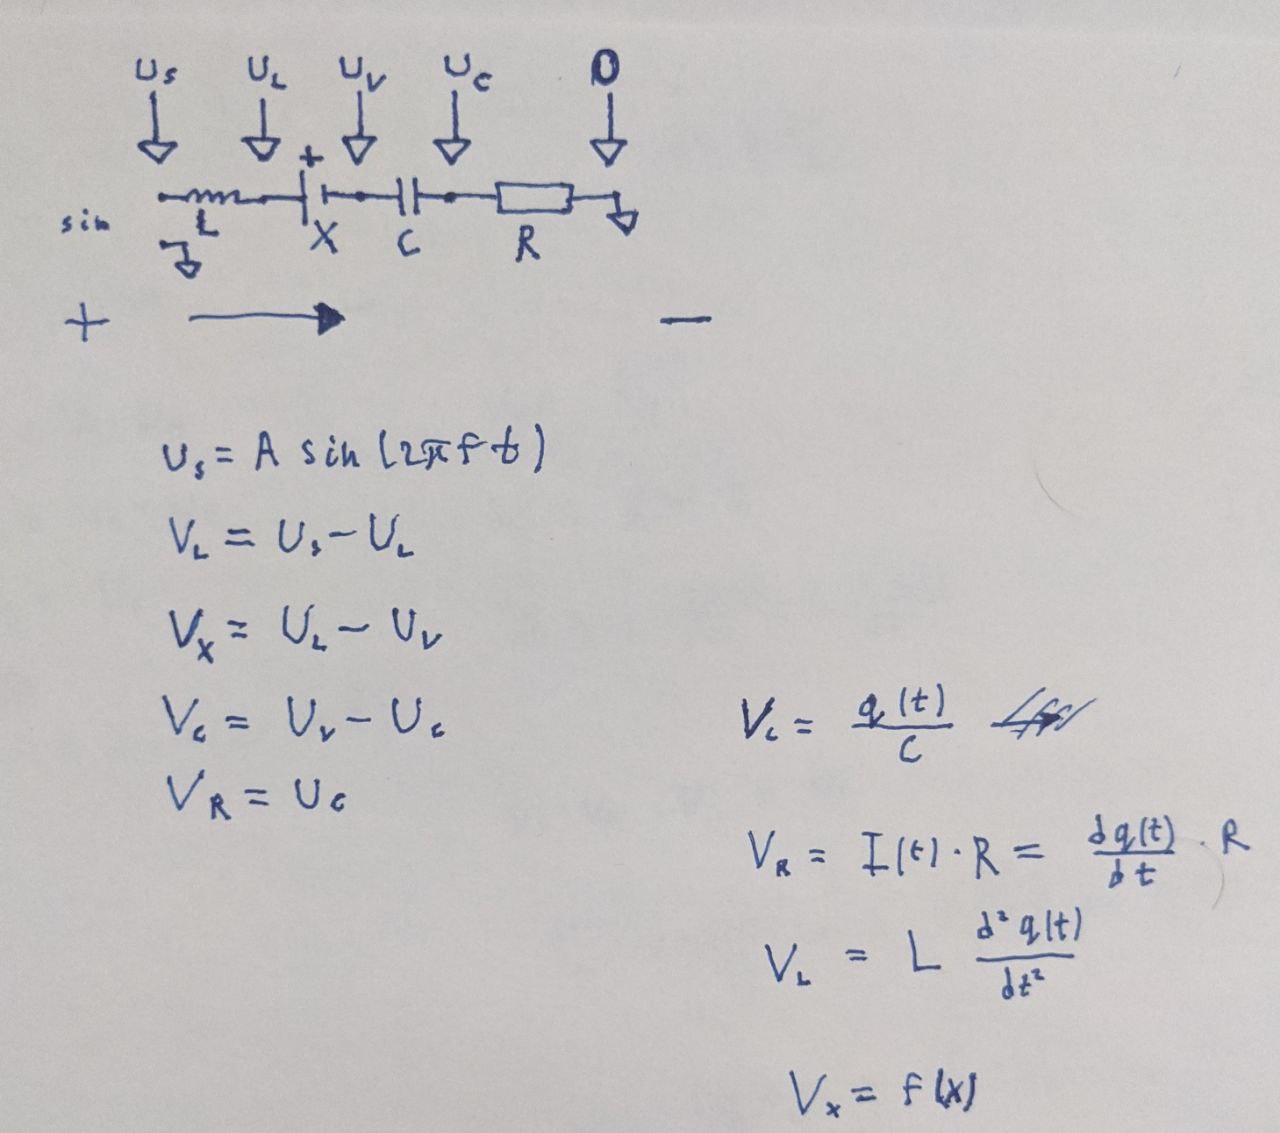 U_s U_L U_V U_C 0
+
sin L X C R
+ −
U_s = A sin (2πft)
V_L = U_s − U_L
V_x = U_L − U_V
V_c = U_V − U_c
V_R = U_c
V_c = q(t)/C
V_R = I(t) · R = dq(t)/dt · R
V_L = L d²q(t)/dt²
V_x = f(x)